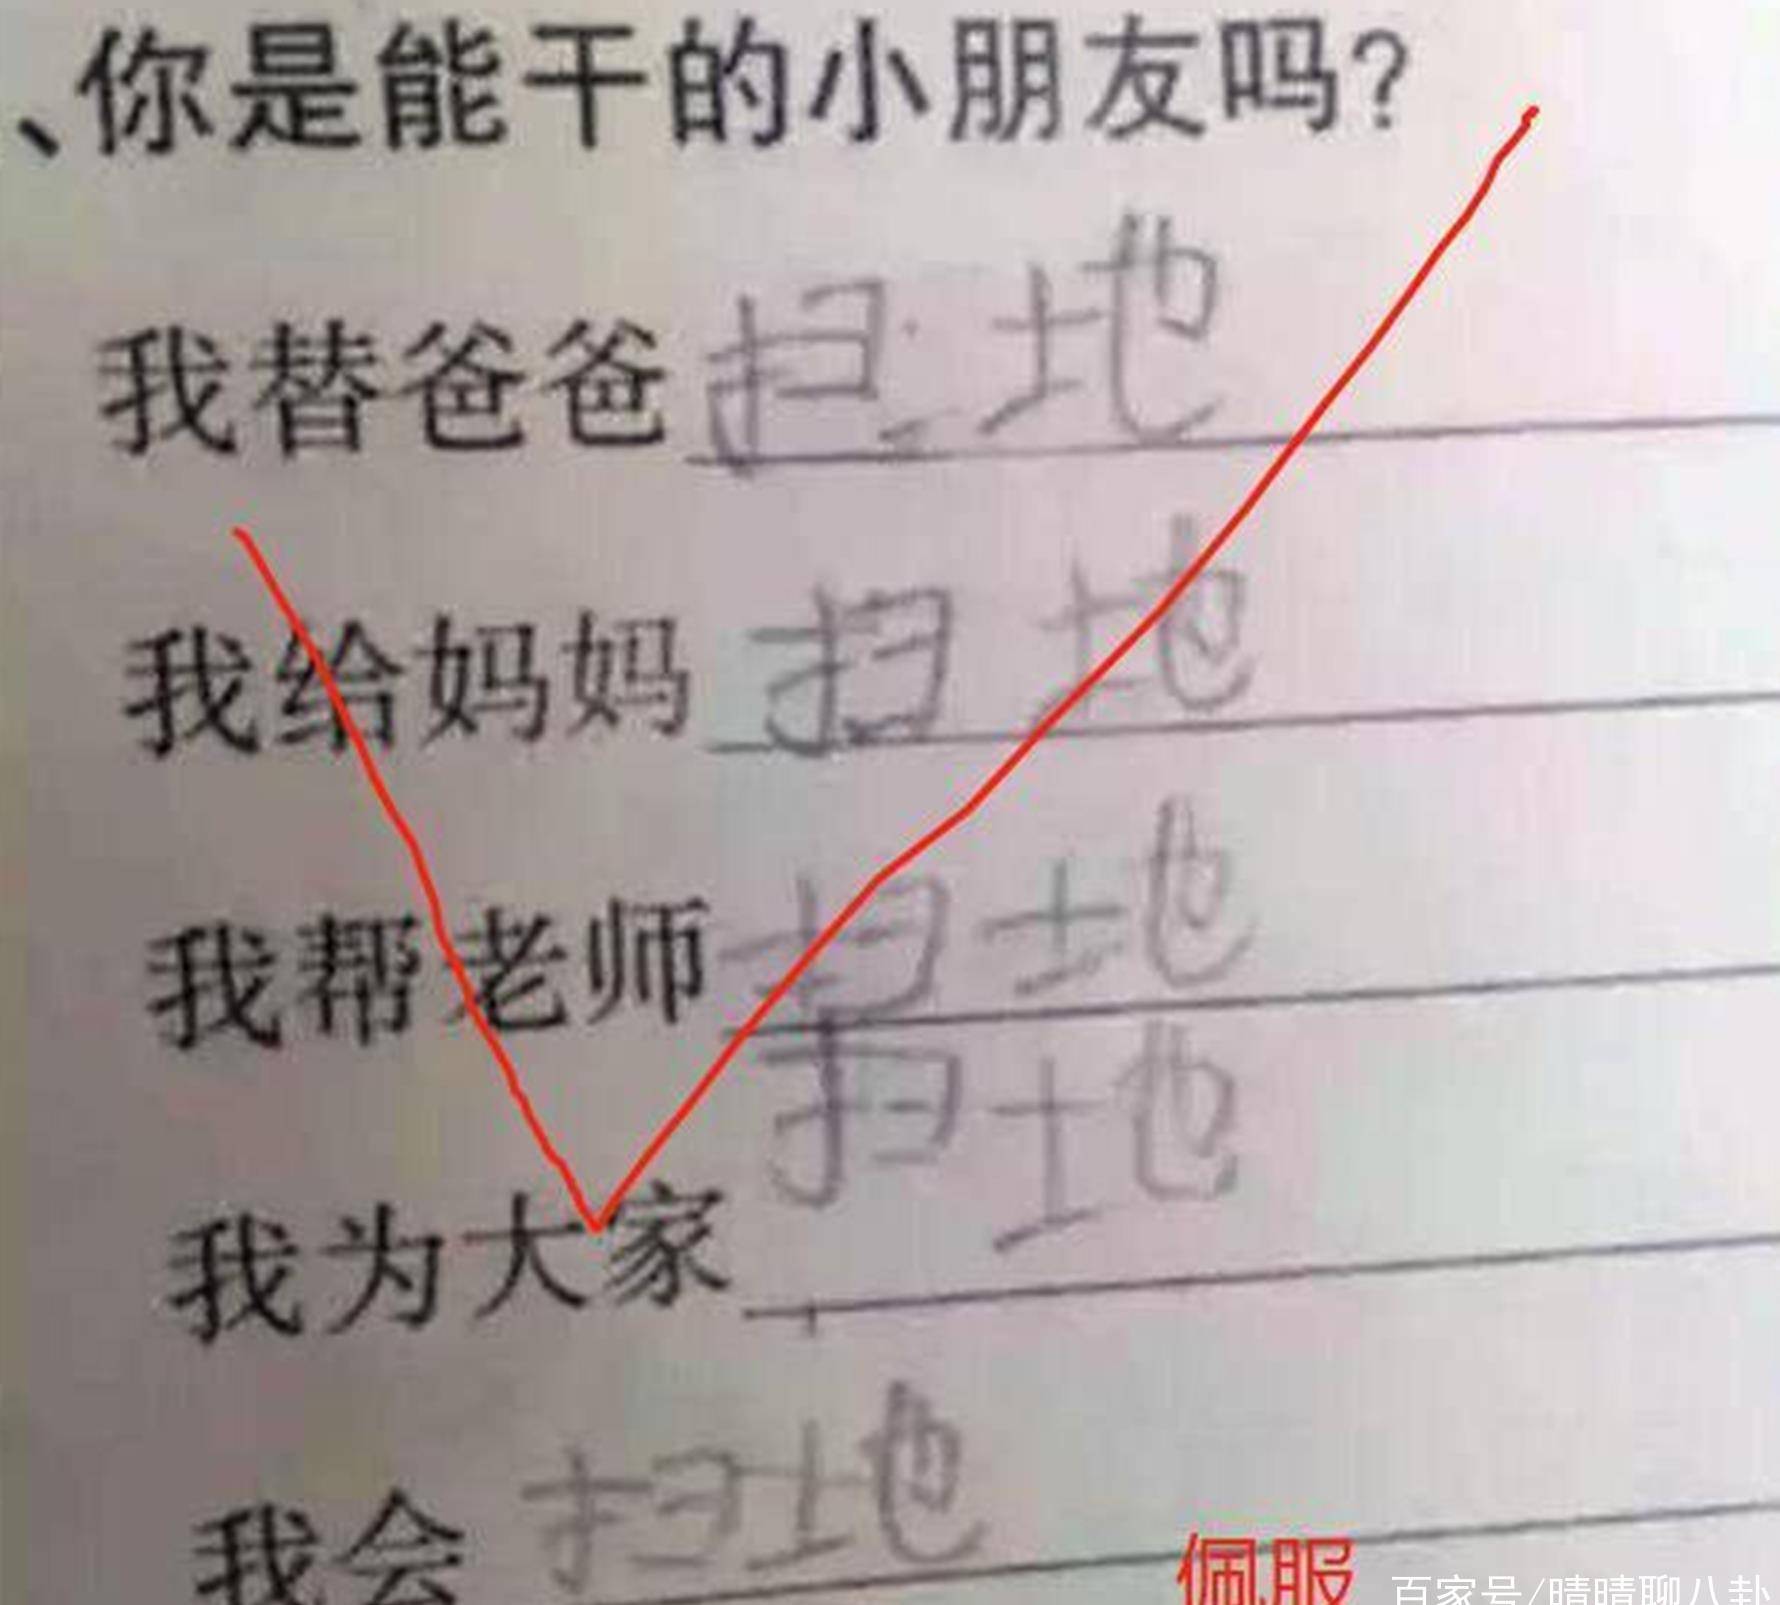 、你是能干的小朋友吗?
我替爸爸扫地
我给妈妈扫地
我帮老师扫地
我为大家扫地
我会扫地
佩服
百家号/晴晴聊八卦